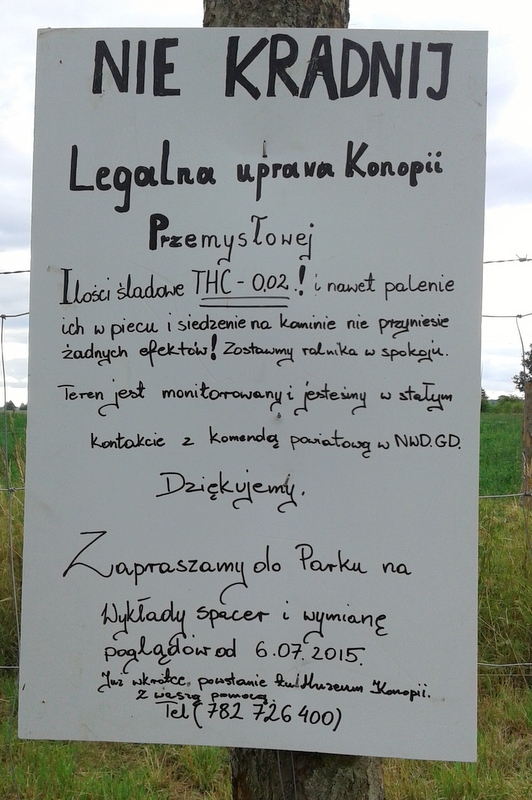 NIE KRADNIJ
Legalna uprawa Konopii
Przemysłowej
Ilości śladowe THC - 0,02.! i nawet palenie
ich w piecu i siedzenie na kominie nie przyniesie
żadnych efektów! Zostawmy rolnika w spokoju.
Teren jest monitorowany i jesteśmy w stałym
kontakcie z komendą powiatową w NWD.GD.
Dziękujemy.
Zapraszamy do Parku na
Wykłady spacer i wymianę
poglądów od 6.07.2015.
Już wkrótce powstanie Muzeum Konopii.
z waszą pomocą
Tel (782 726 400)